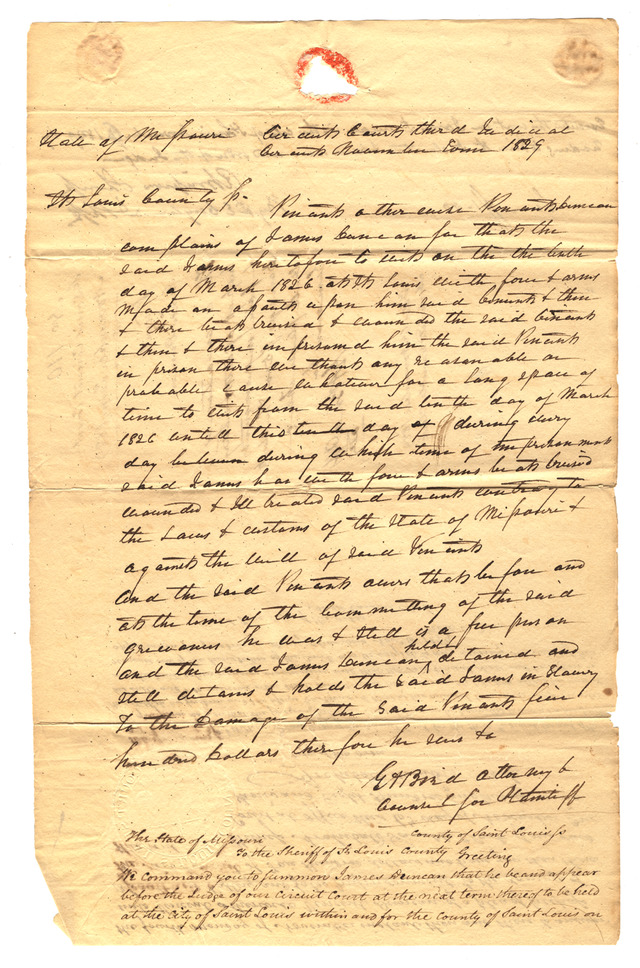 State of Missouri Circuit Court third Judicial
Circuit November Term 1829
St Louis County Ss. Vincent otherwise Vincent Duncan
complains of James Duncan for that the
said James heretofore to wit on the the tenth
day of March 1826 at St Louis with force & arms
Made an assault upon him said Vincent & then
& there beat bruised & wounded the said Vincent
& then & there imprisoned him the said Vincent
in prison there without any reasonable or
probable cause whatever for a long space of
time to wit from the said tenth day of March
1826 until this tenth day of during every
day between during which time of imprisonment
said James has with force & arms beat bruised
wounded & Ill treated said Vincent contrary to
the Laws & customs of the State of Missouri &
against the will of said Vincent
And the said Vincent avers that before and
at the time of the Committing of the said
grievances he was & still is a free person
and the said James Duncan held & detained and
still detains & holds the said James in Slavery
To the Damage of the said Vincent five
hundred Dollars therefore he sues &c
Attorney &
Counsel for Plaintiff
The State of Missouri County of Saint Louis Ss
To the Sheriff of St. Louis County Greeting
We command you to summon James Duncan that he be and appear
before the Judge of our Circuit Court at the next term thereof to be held
at the City of Saint Louis within and for the County of Saint Louis on